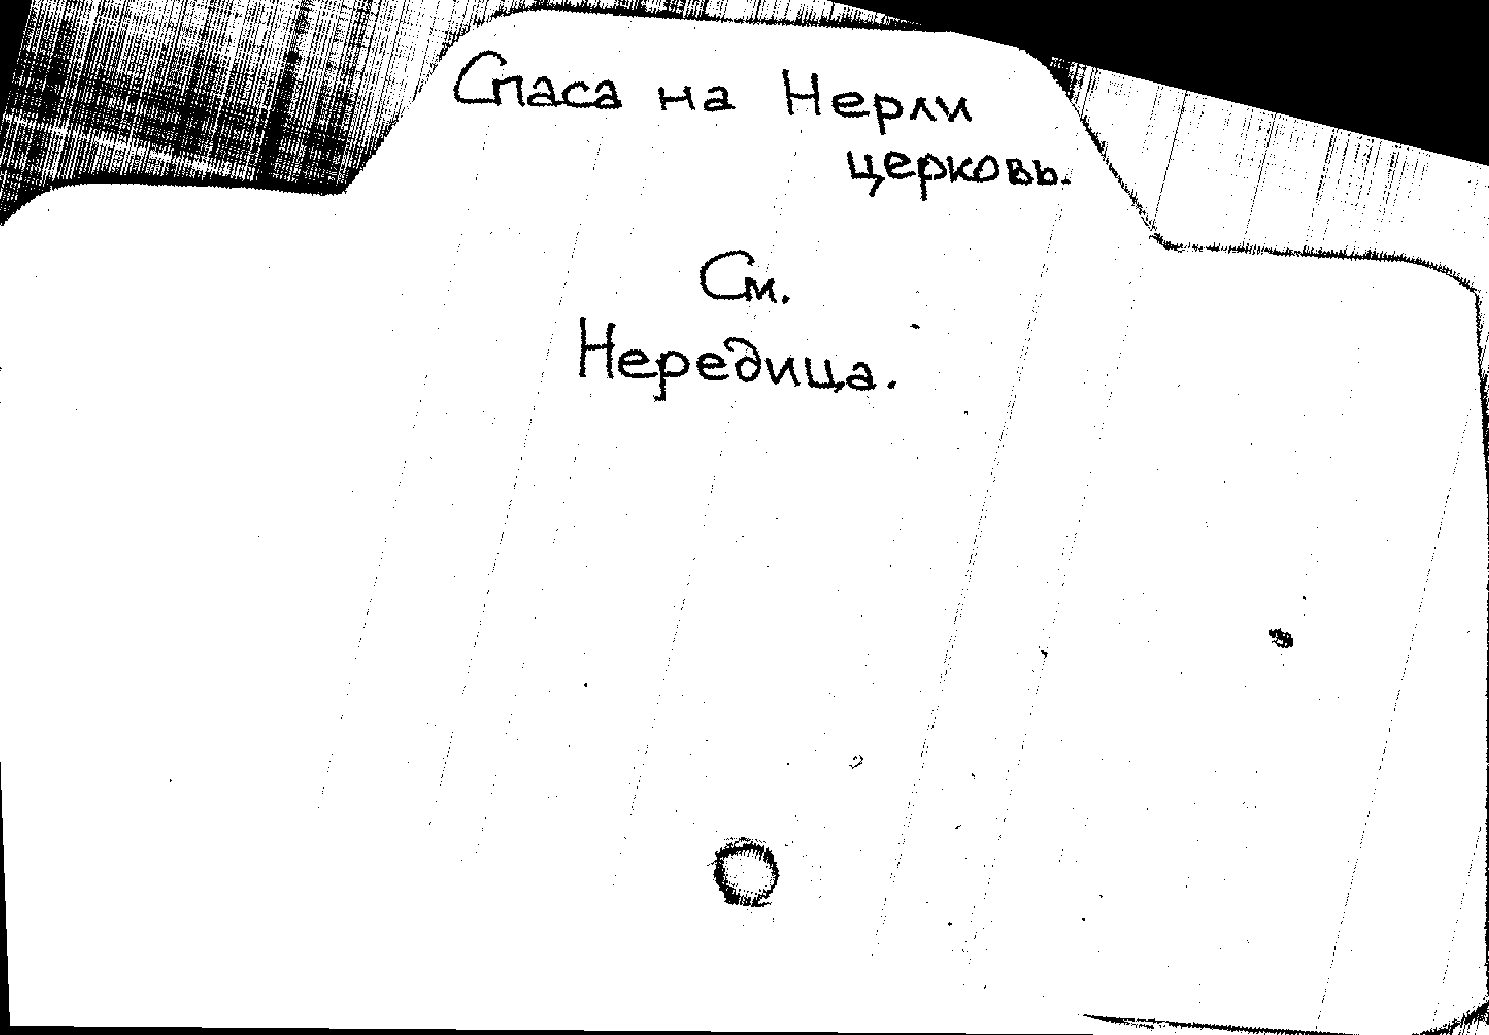 Спаса на Нерли
церковь.
См.
Нередица.